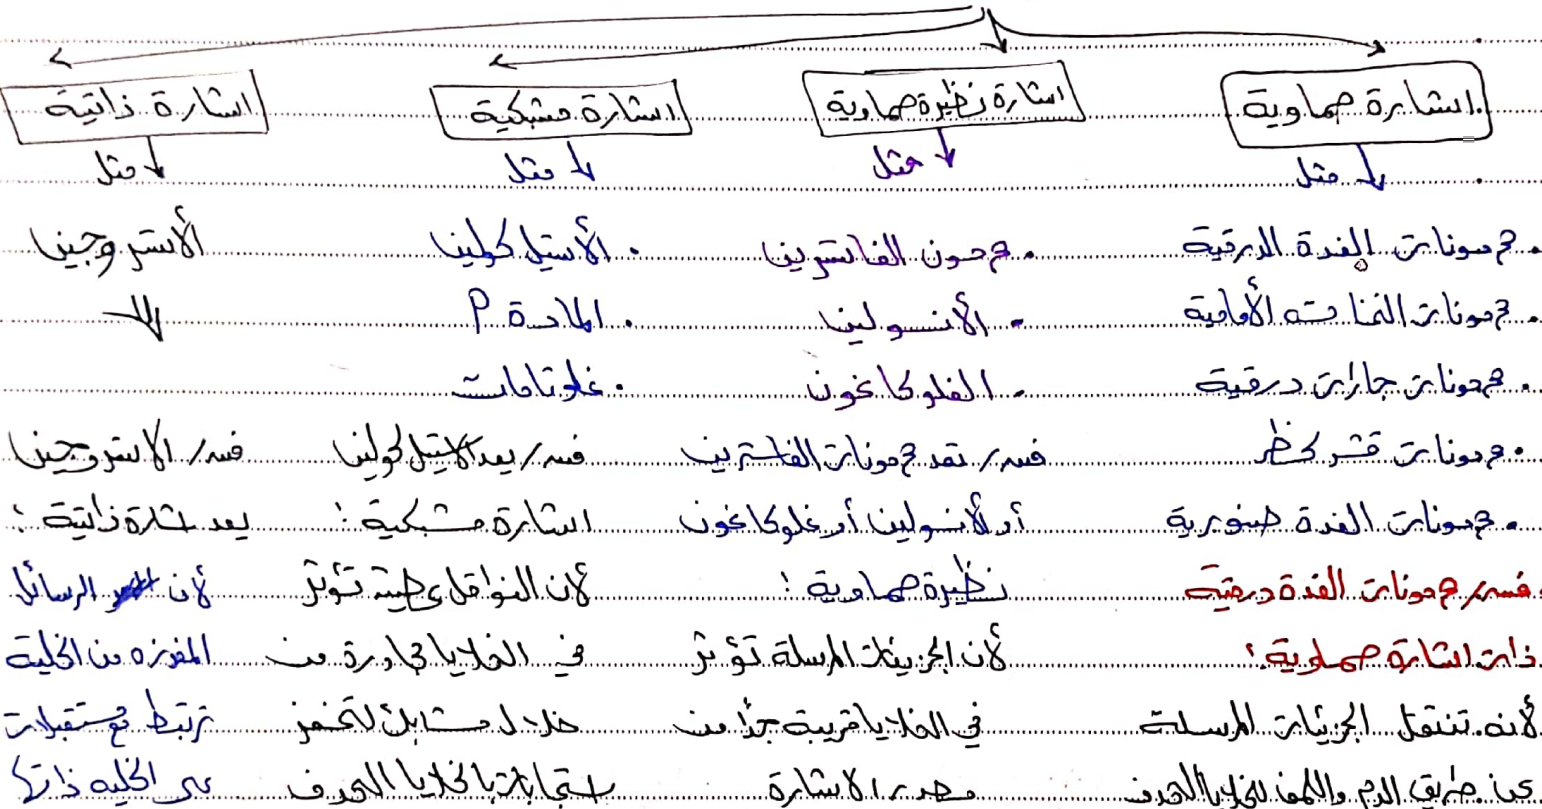 اشارة صماوية
اشارة نظيرة صماوية
اشارة مشبكية
اشارة ذاتية
مثل
مثل
مثل
مثل
. هرمونات الغدة الدرقية
. هرمونات النخامة الأمامية
. هرمونات جارات درقية
. هرمونات قشر كظر
. هرمونات الغدة صنوبرية
فسر/ هرمونات الغدة درقية
ذات اشارة صماوية:
لأنه تنتقل الجزيئات المرسلة
عن طريق الدم واللمف للخلايا الهدف
. هرمون الغاسترين
- الأنسولين
- الغلوكاغون
فسر/ تعد هرمونات الغاسترين
أو لأنسولين أو غلوكاغون
نظيرة صماوية:
لأن الجزيئات المرسلة تؤثر
في الخلايا قريبة جدًا من
مصدر الاشارة
. الأستيل كولين
. المادة P
. غلوتامات
فسر/ يعد الاستيل كولين
اشارة مشبكية:
لأن النواقل عصبية تؤثر
في الخلايا مجاورة من
خلال مشابك لتحفز
استجابات بالخلايا الهدف
الأستروجين
فسر/ الاستروجين
يعد اشارة ذاتية:
لأن الرسائل
المفرزه من الخلية
ترتبط مع مستقبلات
على الخليه ذاتها